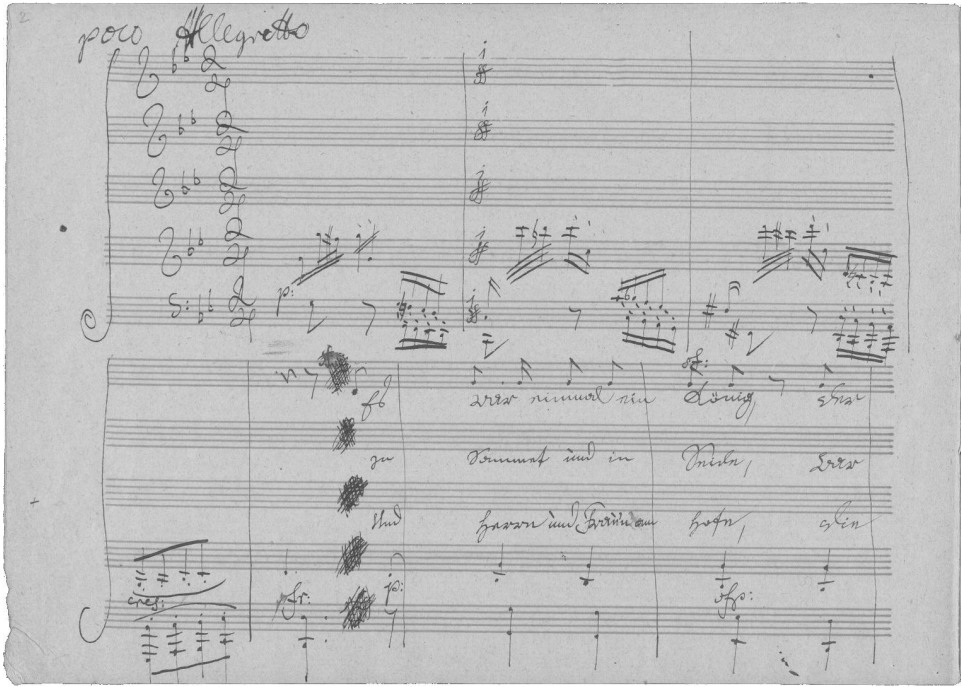 2
poco Allegretto
p:
sf:
Es war einmal ein König, der
In Sammet und in Seide, war
Und Herrn und Fraun am Hofe, die
p:
cres: sfp: